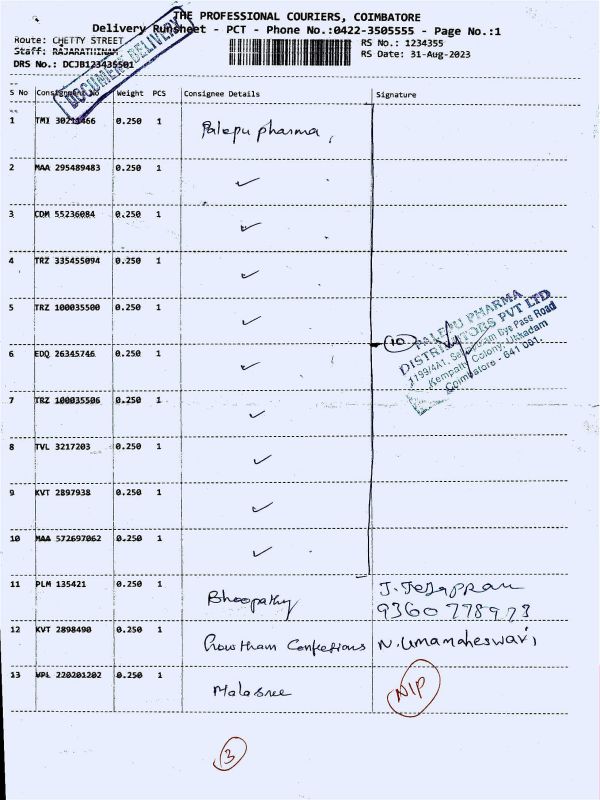 THE PROFESSIONAL COURIERS, COIMBATORE
Delivery Runsheet - PCT - Phone No.:0422-3505555 - Page No.:1
Route: CHETTY STREET RS No.: 1234355
Staff: RAJARATHINAM RS Date: 31-Aug-2023
DRS No.: DCJB123435501
DOCUMENT DELIVERY
S No Consignment No Weight PCS Consignee Details Signature
1 TMI 0.250 1 Palepu pharma,
2 MAA 295489483 0.250 1 ✓
3 CDM 55236084 0.250 1 ✓
4 TRZ 335455094 0.250 1 ✓
5 TRZ 100035500 0.250 1 ✓
(10) PALEPU PHARMA
DISTRIBUTORS PVT LTD
1199/4A1, Bye Pass Road
Kempatti Colony, Ukkadam
Coimbatore - 641 001.
6 EDQ 26345746 0.250 1 ✓
7 TRZ 100035506 0.250 1 ✓
8 TVL 3217203 0.250 1 ✓
9 KVT 2897938 0.250 1 ✓
10 MAA 572697062 0.250 1 ✓
11 PLM 135421 0.250 1 Bhoopathy
12 KVT 2898490 0.250 1 Gowtham N. Umamaheswari
13 VPL 220201202 0.250 1 Malasree NIP
3